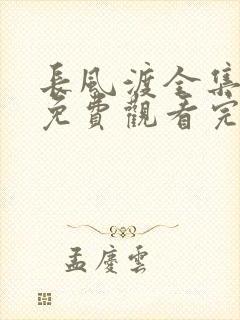 長風渡全集
免費觀看完
孟慶雲